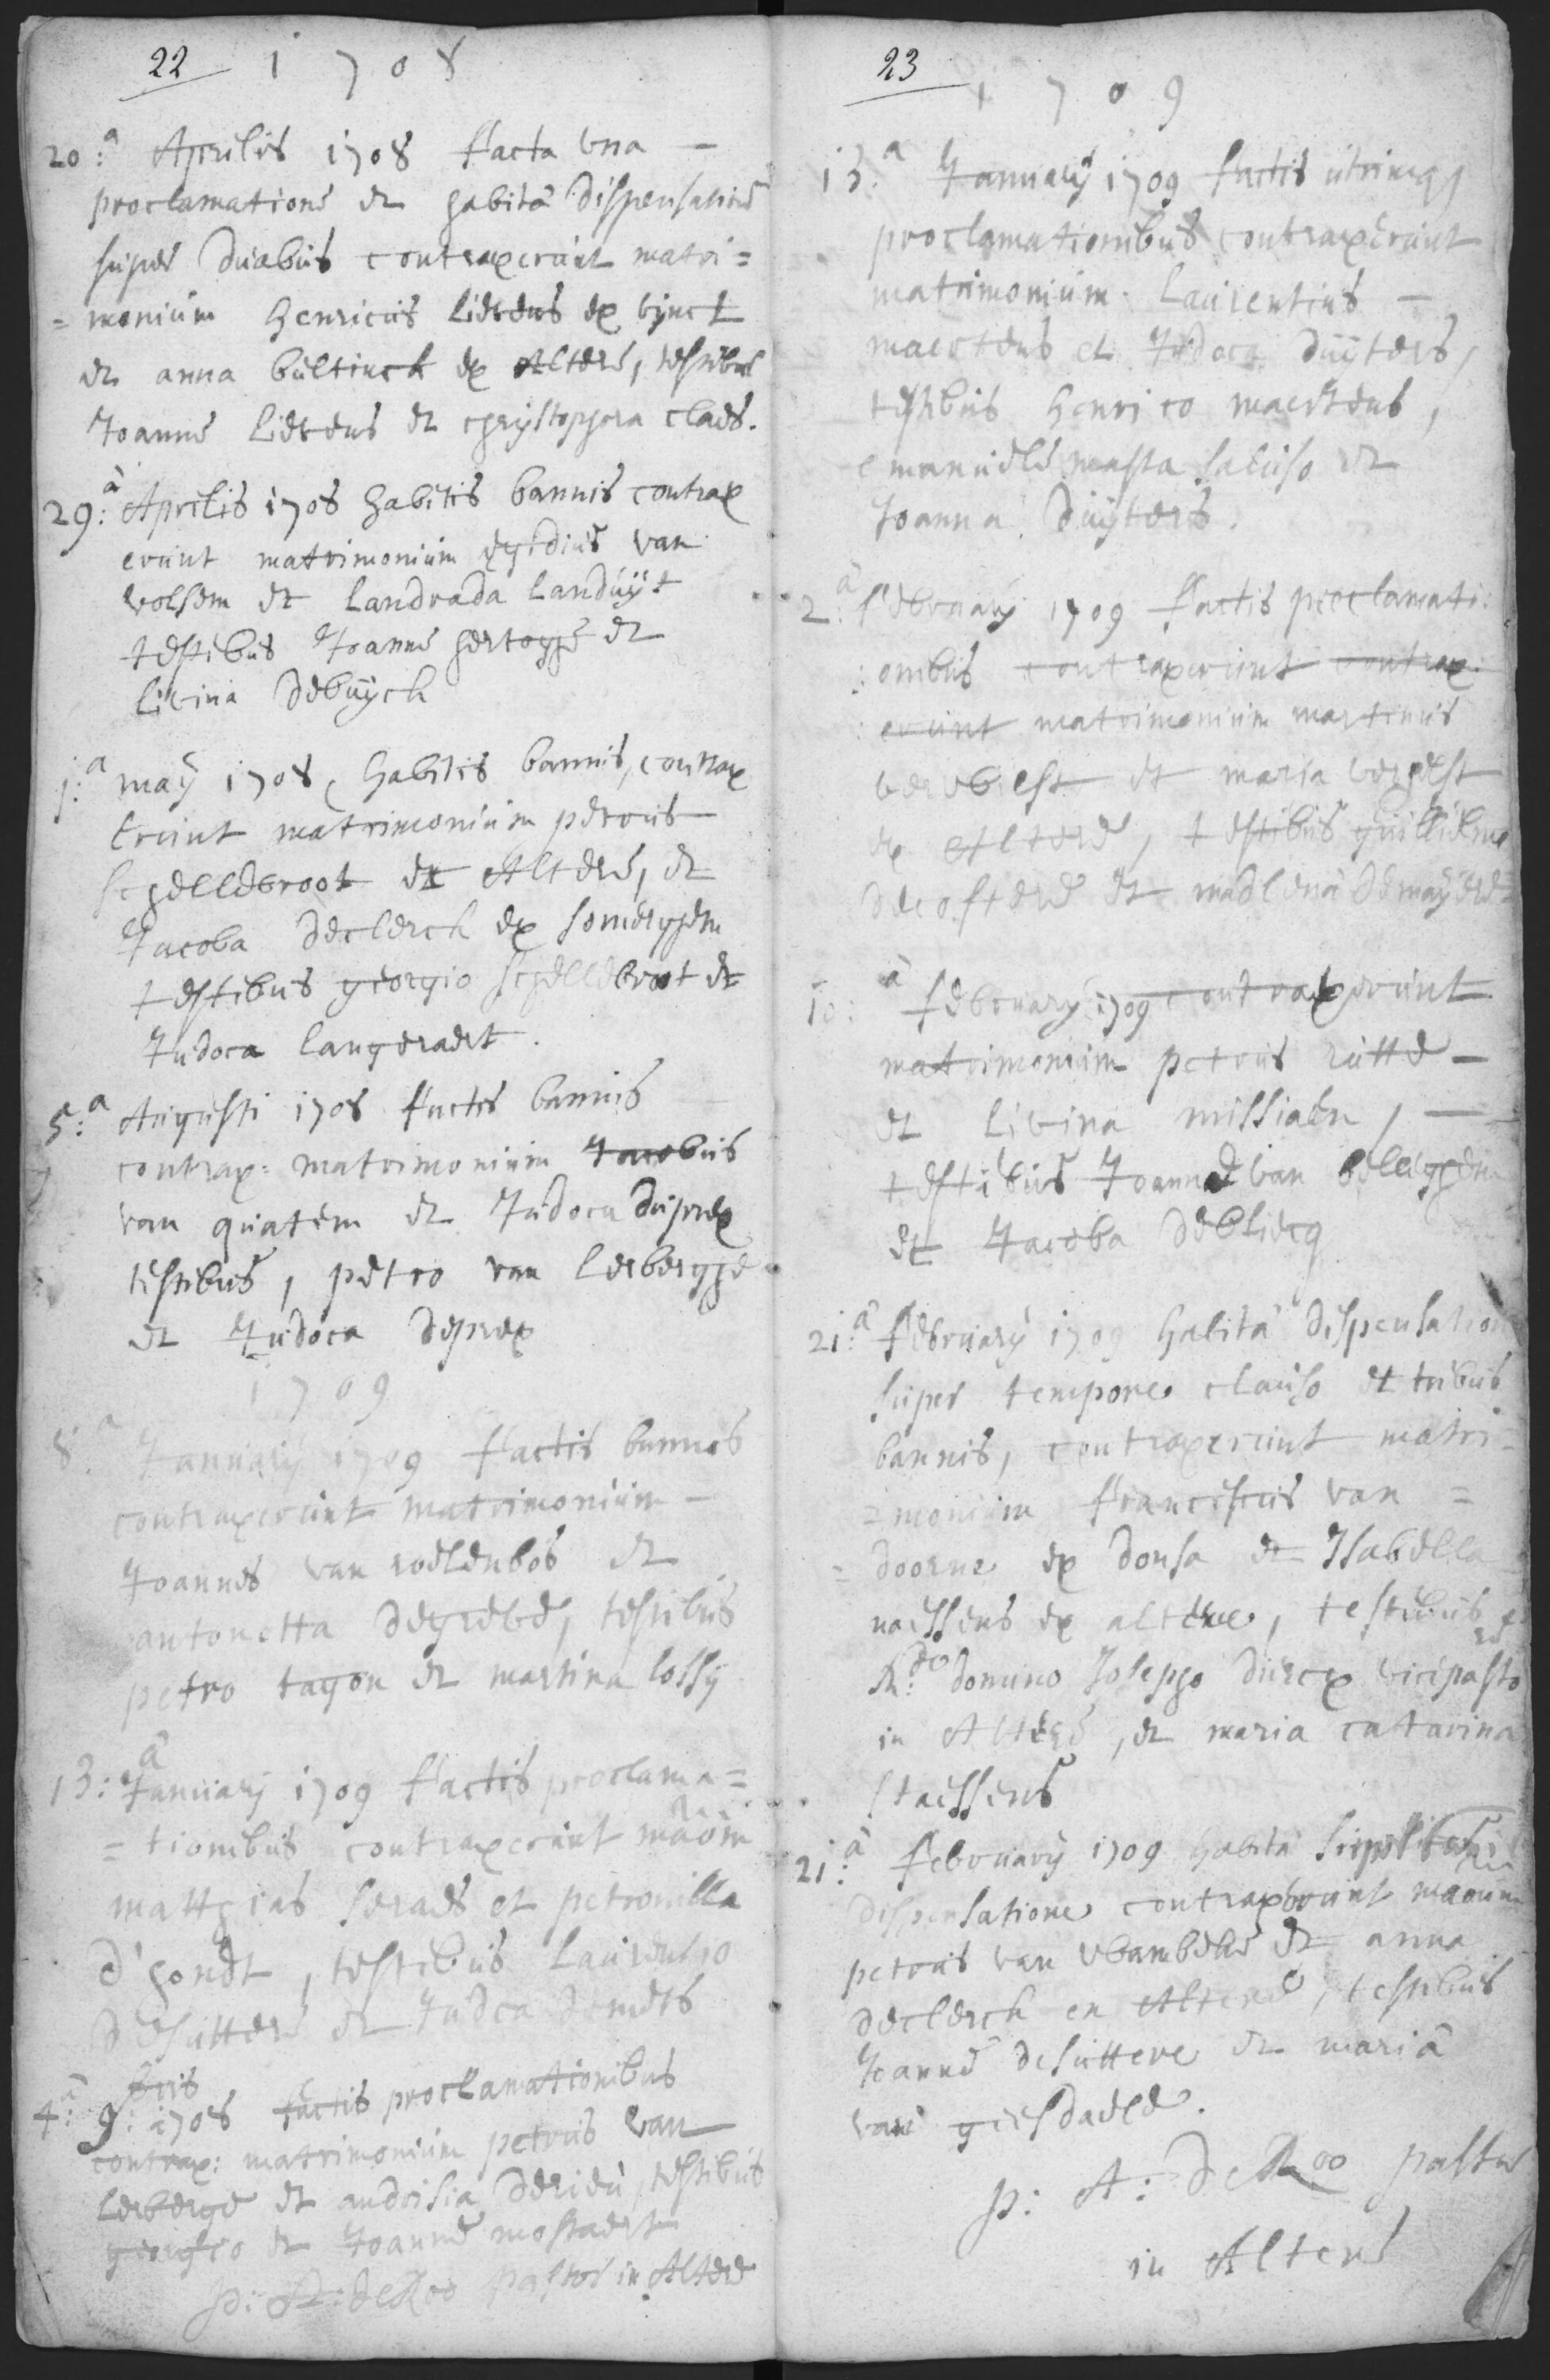 22 1708
20:a Aprilis 1708 facta una -
proclamatione et habita dispensatione
super duabus contraxerunt matri=
= monium henricus lievens ex vynct
et anna bultinck ex Altere, testibus
Joanne lievens et christophora claes.
29:a Aprilis 1708 habitis bannis contrax
erunt matrimonium egidius van
wolsem et landrada landuyt
testibus Joanne hertoghe et
livina debuyck
1:a may 1708, habitis bannis, contrax
erunt matrimonium petrus
schellebroot ex Altere, et
Jacoba declerck ex somerghem
testibus georgio schellebroot et
Judoca langeraert.
5:a Augusti 1708 factis bannis
contrax: matrimonium Jacobus
van quatem et Judoca duprex
testibus, petro van lerberghe
et Judoca deprex
1709
8.a Januarij 1709 factis bannis
contraxerunt matrimonium -
Joannes van roelenbos et
antonetta degreve, testibus
petro tagon et martina lossy
13:a Januarij 1709 factis proclama=
= tionibus contraxerunt maom
matthias seraes et petronilla
d'hondt, testibus laurentio
desuttere et Judoca
4:a 9:bris 1708 factis proclamationibus
contrax: matrimonium petrus van
lerberge et andrisia deridu, testibus
georgio et Joanne mostaert
p: A: deRoo pastor in Altere
23
1709
13.a Januarij 1709 factis utrimqq
proclamationibus contraxerunt
matrimonium laurentius -
maertens et Judoca duyters,
testibus henrico maertens,
emanuele masta saluso et
Joanna duyters.
2:a februarij 1709 factis proclamati:
: onibus contraxerunt contrax:
: erunt matrimonium martinus
verbiest et maria verhelst
ex Altere, testibus guillielmo
decostere et madlena demayere
10:a february 1709 contraxerunt
matrimonium petrus rutte -
et livina missiaen, -
testibus Joanne van belleghem
et Jacoba debliecq
21:a february 1709 habita dispensatione
super tempore clauso et tribus
bannis, contraxerunt matri=
= monium franciscus van =
= doorne ex donsa et Isabella
naessens ex altere, testibus
R:do domino Josepho durcx vicepasto
re in Altere, et maria catarina
staessens
21:a february 1709 habita
dispensatione contraxerunt maoum
petrus van ubambeke et anna
declerck en Altere, testibus
Joanne desuttere et maria
van giesdaele.
p: A: deRoo pastor
in Altere